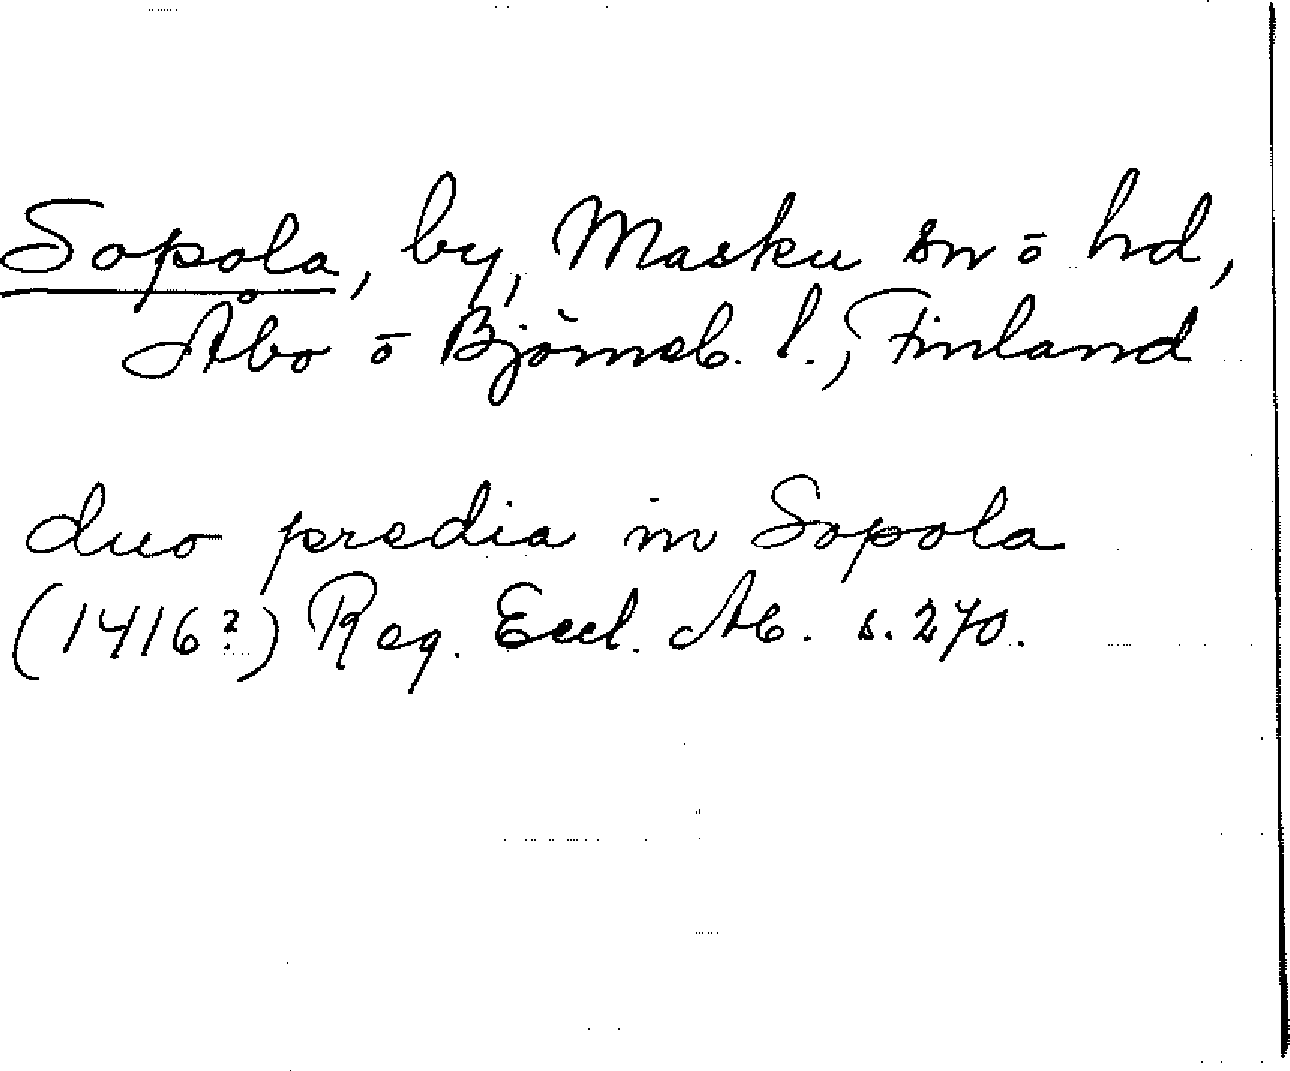 Sopola, by, Masku sn ō hd,
Åbo ō Björneb. l., Finland
duo predia in Sopola
(1416?) Reg. Eccl. Ab. s. 270.